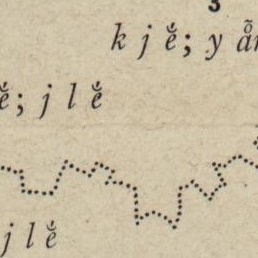 k j ĕ́; y
ĕ́; j l ĕ́
j l ĕ́